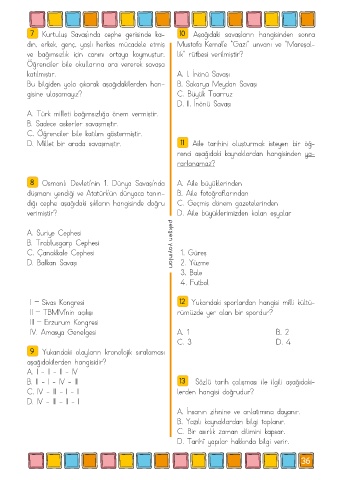 7 Kurtuluş Savaşında cephe gerisinde ka-
dın, erkek, genç, yaşlı herkes mücadele etmiş
ve bağımsızlık için canını ortaya koymuştur.
Öğrenciler bile okullarına ara vererek savaşa
katılmıştır.
Bu bilgiden yola çıkarak aşağıdakilerden han-
gisine ulaşamayız?
A. Türk milleti bağımsızlığa önem vermiştir.
B. Sadece askerler savaşmıştır.
C. Öğrenciler bile katılım göstermiştir.
D. Millet bir arada savaşmıştır.
8 Osmanlı Devleti'nin 1. Dünya Savaşında
düşmanı yendiği ve Atatürkün dünyaca tanın-
dığı cephe aşağıdaki şıkların hangisinde doğru
verilmiştir?
A. Suriye Cephesi
B. Trablusgarp Cephesi
C. Çanakkale Cephesi
D. Balkan Savaşı
I – Sivas Kongresi
II – TBMM'nin açılışı
III – Erzurum Kongresi
IV. Amasya Genelgesi
9 Yukarıdaki olayların kronolojik sıralaması
aşağıdakilerden hangisidir?
A. I - I - II - IV
B. II - I - IV - III
C. IV - III - I - II
D. IV - III - II - I
pelican yayınları
10 Aşağıdaki savaşların hangisinden sonra
Mustafa Kemal'e "Gazi" unvanı ve "Mareşal-
lik" rütbesi verilmiştir?
A. I. İnönü Savaşı
B. Sakarya Meydan Savaşı
C. Büyük Taarruz
D. II. İnönü Savaşı
11 Aile tarihini oluşturmak isteyen bir öğ-
renci aşağıdaki kaynaklardan hangisinden ya-
rarlanamaz?
A. Aile büyüklerinden
B. Aile fotoğraflarından
C. Geçmiş dönem gazetelerinden
D. Aile büyüklerimizden kalan eşyalar
1. Güreş
2. Yüzme
3. Bale
4. Futbol
12 Yukarıdaki sporlardan hangisi milli kültü-
rümüzde yer alan bir spordur?
A. 1 B. 2
C. 3 D. 4
13 Sözlü tarih çalışması ile ilgili aşağıdaki-
lerden hangisi doğrudur?
A. İnsanın zihnine ve anlatımına dayanır.
B. Yazılı kaynaklardan bilgi toplanır.
C. Bir asırlık zaman dilimini kapsar.
D. Tarihî yapılar hakkında bilgi verir.
36